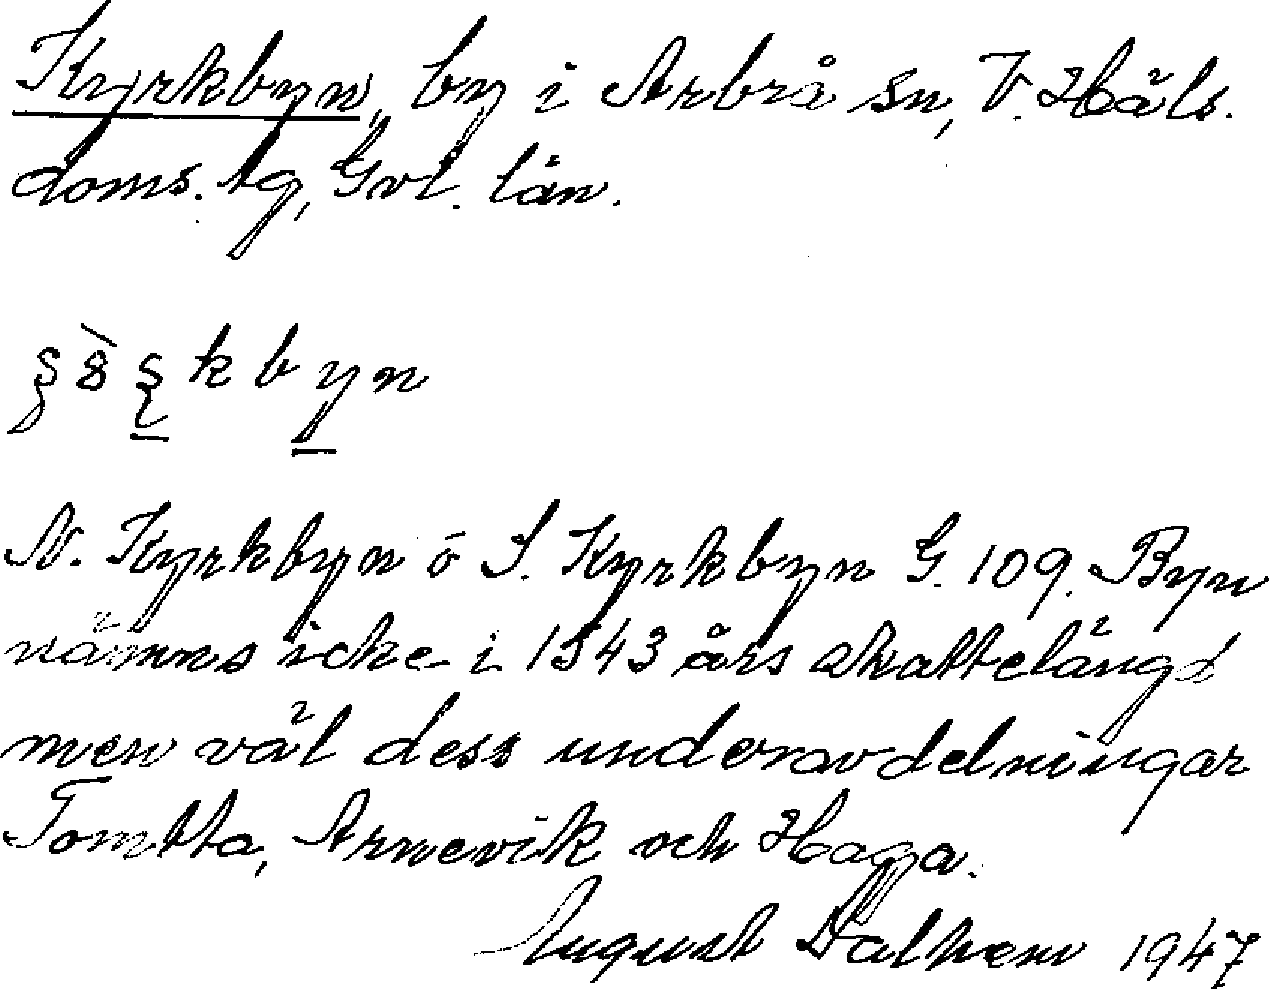 Kyrkbyn, by i Arbrå sn, V. Häls.
doms. tg, Gvl. län.
N. Kyrkbyn o S. Kyrkbyn G. 109. Byn
nämns icke i 1543 års skattelängd
men väl dess underavdelningar
Tomtta, Arnevik och Haga.
August Dalhem 1947